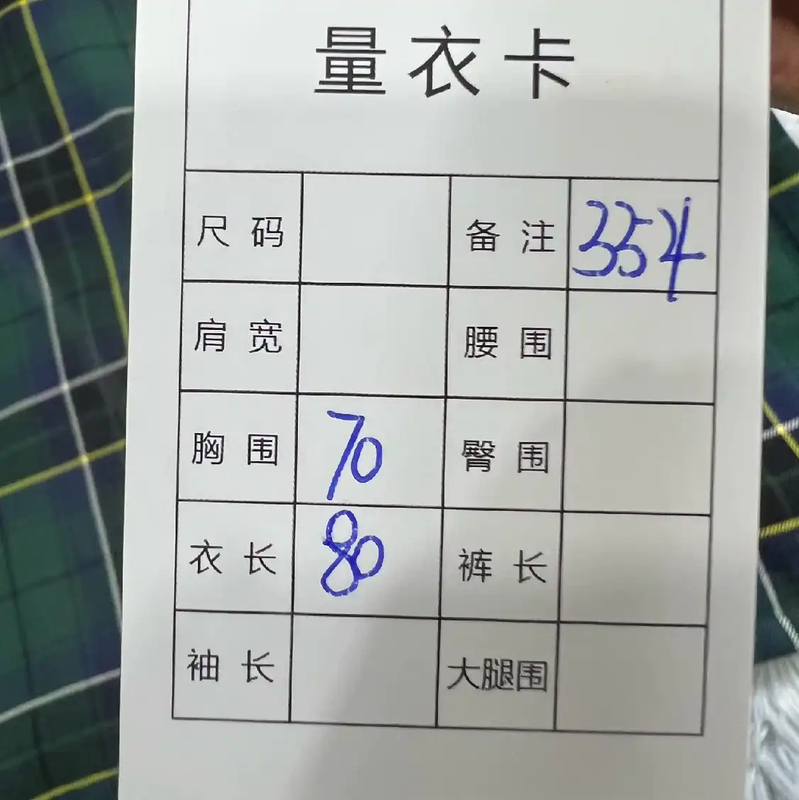 量衣卡
尺码 备注 354
肩宽 腰围
胸围 70 臀围
衣长 80 裤长
袖长 大腿围